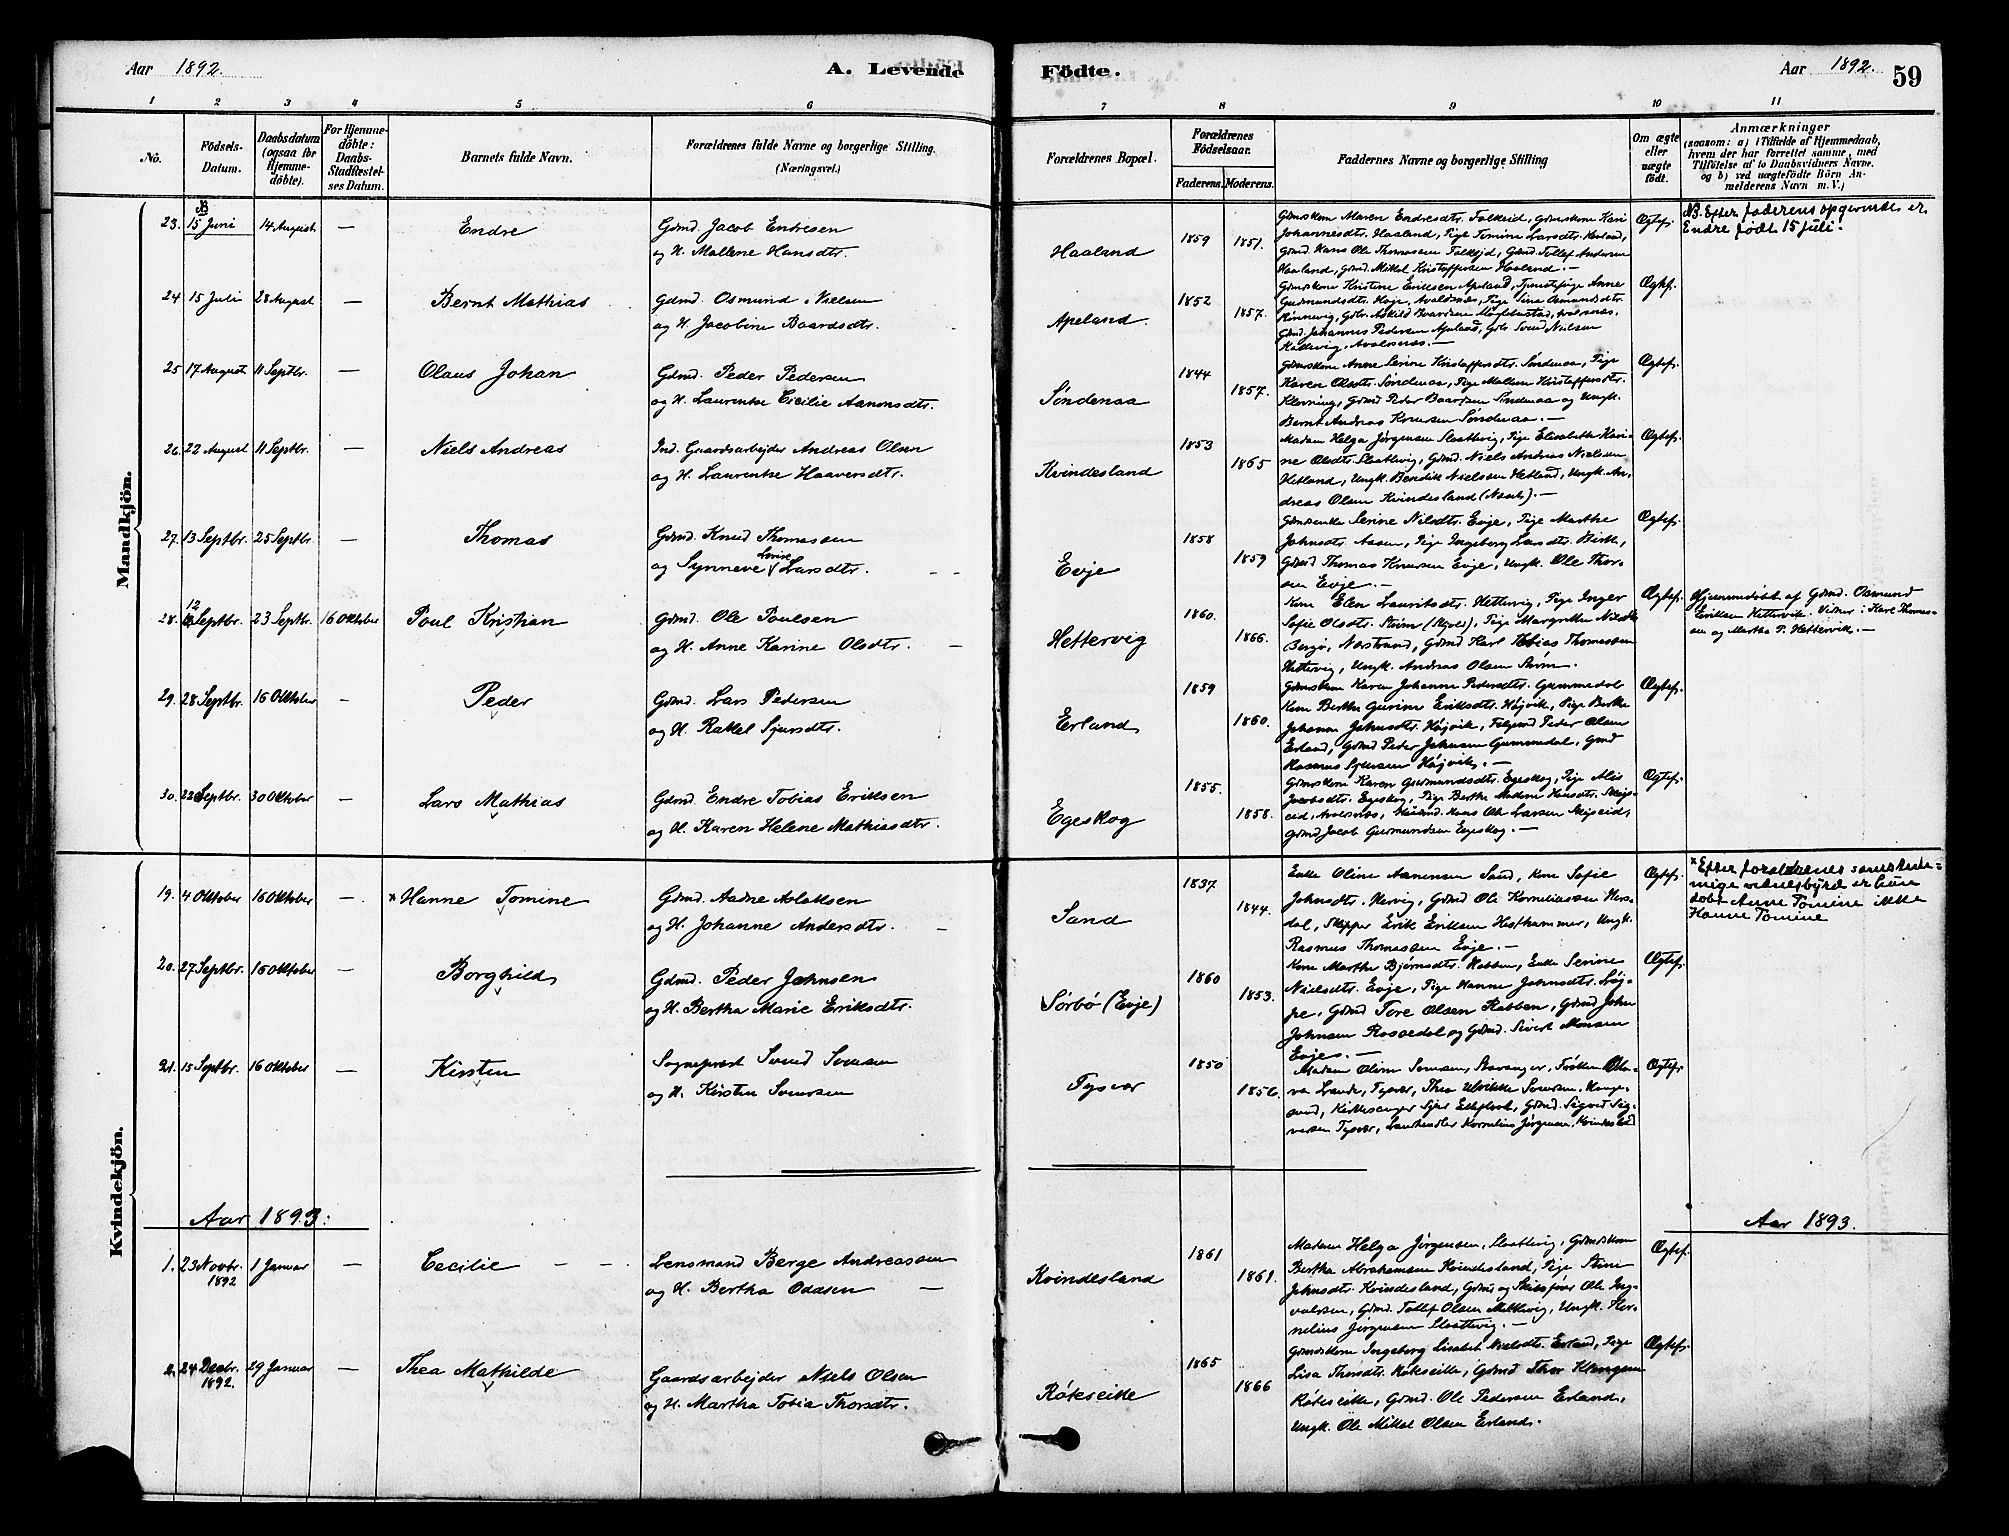 Aar 1892.
A. Levende
Födte.
Aar 1892.
59
1 2 3 4 5 6 7 8 9 10 11
No.
Födsels-Datum.
Daabsdatum (ogsaa for Hjemme-döbte).
For Hjemme-döbte: Daabs-Stadfæstel-ses Datum.
Barnets fulde Navn.
Forældrenes fulde Navne og borgerlige Stilling.
(Næringsvei.)
Forældrenes Bopæl.
Forældrenes Födselsaar.
Faderens. Moderens.
Faddernes Navne og borgerlige Stilling
Om ægte eller uægte födt.
Anmærkninger
(saasom: a) i Tilfælde af Hjemmedaab,
hvem der har forrettet samme, med
Tilföielse af to Daabsvidners Navne.
og b) ved uægtefödte Börn An-
melderens Navn m. V.)
Mandkjön.
23. 15 Juni 14 August — Endre
Gdmd. Jacob Endresen
og H. Mallene Hansdtr.
Haaland 1859 1851.
Gdmskone Maren Endresdtr. Falkeid, Gdmskone Kari
Johannesdtr. Haaland, Pige Tomine Larsdtr.
Gdmd. Hans Ole Thomassen Falkejd, Gdmd. Tollef Andersen
Haaland, Gdmd. Mikkel Kristoffersen Haaland. —
Ægtef.
NB. Efter faderens opgivende er
Endre født 15 juli.
24 15 Juli 28 August — Bernt Mathias
Gdmd. Osmund Nielsen
og H. Jacobine Baardsdtr.
Apeland 1852 1857.
Gdmskone Kristine Eriksen Apeland, Tjenestepige Anne
Gudmundsdtr. Høje, Avaldsnæs, Pige Sina Osmundsdtr.
Gdmd. Johannes Pedersen Apeland, Gdbr. Svend Nielsen
Ægtef.
25 17 August 11 Septbr. — Olaus Johan
Gdmd. Peder Pedersen
og H. Laurentse Cicilie Aanonsdtr.
Søndenaa 1844 1857.
Gdmskone Anne Serine Kristoffersdtr. Søndenaa, Pige
Karen Olsdtr. Søndenaa, Pige Mallene Kristoffersdtr.
Klovning, Gdmd Peder Baardsen Søndenaa og Ungk.
Bernt Andreas Knudsen Søndenaa. —
Ægtef.
26. 22 August 11 Septbr. — Niels Andreas
Ind. Gaardsarbejder Andreas Olsen
og H. Laurentse Haaversdtr.
Kvindesland 1853 1865
Madam Helga Jørgensen Slaattevig, Pige Elisabeth Kari-
ne Olsdtr. Slaattevig, Gdmd. Niels Andreas Nielsen
Hetland, Ungk. Bendik Nielsen Hetland, Ungk. An-
dreas Olsen Kvindesland
Ægtef.
27. 13 Septbr. 25 Septbr. — Thomas
Gdmd. Knud Thomassen
og Synneve Lovise Larsdtr.
Evje 1858 1859
Serine Nilsdtr. Evje, Pige Marthe
Johnsdtr. Aasen, Pige Ingeborg Larsdtr. Birke,
Gdmd Thomas Knudsen Evje, Ungk. Ole Thor-
sen Evje. —
Ægtef.
28. 12 Septbr. 23 Septbr. 16 Oktober Poul Kristian
Gdmd. Ole Poulsen
og H. Anne Karine Olsdtr.
Hettervig 1860. 1866.
Kone Elen Lauritsdtr. Hettervig, Pige Inger
Sofie Olsdtr. Strøm (Skjold), Pige Margrethe
Bergø, Nærstrand, Gdmd Karl Tobias Thomassen
Hettervig, Ungk. Andreas Olsen Strøm.
Ægtef.
Hjemmedøbt af Gdmd. Osmund
Eriksen Hettervik. Vidner: Karl Thomas-
sen og Martha P. Hettervik. —
29. 28 Septbr. 16 Oktober — Peder
Gdmd. Lars Pedersen
og H. Rakel Sjursdtr.
Erland 1859 1860.
Gdmskone Karen Johanne Pedersdtr. Gummedal
Kone Berthe Gurine Eriksdtr. Højvik, Pige Berthe
Johanna Johnsdtr. Højvik, Peder Olsen
Erland, Gdmd Peder Johnsen Gummedal, Gmd
Rasmus Sjursen Højvik. —
Ægtef.
30. Septbr. 30 Oktober — Lars Mathias
Gdmd. Endre Tobias Eriksen
og H. Karen Helene Mathiasdtr.
Egeskog 1855. 1858.
Gdmskone Karen Gudmundsdtr. Egeskog, Pige Alis
Jacobsdtr. Egeskog, Pige Berthe Malene Hansdtr.
Hans Ole Larsen
Gdmd Jacob Gudmundsen Egeskog. —
Ægtef.
Kvindekjön.
19. 4 Oktober 16 Oktober — *Hanne Tomine
Gdmd. Aadne Aslaksen
og H. Johanne Andersdtr.
Sand 1837 1844.
Enke Oline Aanensen Sand, Kone Sofie
Johnsdtr. Nervig, Gdmd Ole Korneliussen
dal, Skipper Erik Eriksen Hesthammer, Ungk.
Rasmus Thomassen Evje. —
Ægtef.
*Efter forældrenes samstem-
mige vidnesbyrd er hun
døbt Anne Tomine ikke
Hanne Tomine
20. 27 Septbr. 16 Oktober — Borghild
Gdmd. Peder Johnsen
og H. Bertha Marie Eriksdtr.
Sørbø (Evje) 1860 1853.
Kone Martha Bjørnsdtr. Hobben, Enke Serine
Nielsdtr. Evje, Pige Hanne Johnsdtr. Løj-
pe, Gdmd Tore Olsen Rabben, Gdmd John
Johnsen Rossedal og Gdmd. Sivert Monsen
Evje. —
Ægtef.
21. 15 Septbr. 16 Oktober — Kirsten
Sogneprest Svend Svensen
og H. Kirsten Svensen
Tysvær 1850 1856.
Madam Oline Svensen, Stavanger, Frøken
Tysvær, Thea Ulrikke Svensen, Hauge-
sund, Kirkesanger Sjur Gdmd. Sigvod Sig-
vartsen Tysvær, Landhandler Kornelius Jørgensen, Kvindesland
Ægtef.
Aar 1893:
Aar 1893.
1. 23 Novbr. 1892 1 Januar — Cecilie
Lensmand Berge Andreassen
og H. Bertha Oddsen
Kvindesland 1861 1861.
Madam Helga Jørgensen, Slaattevig, Gdmdskone
Bertha Abrahamsen Kvindesland, Pige Stine
Johnsdtr. Kvindesland, Gdmd og Skibsfører Ole Ing-
valdsen, Gdmd. Tollef Olsen Ungk. Kor-
nelius Jørgensen Slaattevig. —
Ægtef.
2. 24 Decbr. 1892. 29 Januar — Thea Mathilde
Gaardsarbejder Niels Olsen
og H. Martha Tobia Thorsdtr.
Røkseitte 1865 1866
Gdmdskone Ingeborg Lisabet Nielsdtr. Erland, Pige
Lisa Thorsdtr. Røkseitte, Gdmd Thor
Røkseitte, Gdmd. Ole Pedersen Erland,
Ungk. Ole Mikal Olsen Erland.
Ægtef.